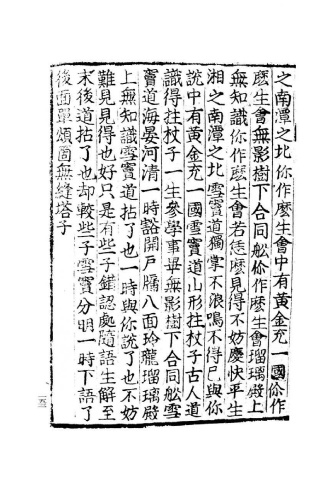 之南潭之北你作麽生會中有黃金充一國你作
麽生會無影樹下合同舩你作麽生會瑠璃殿上
無知識你作麽生會若恁麽見得不妨慶快平生
湘之南潭之北雪竇道獨掌不浪鳴不得已與你
說中有黃金充一國雪竇道山形拄杖子古人道
識得拄杖子一生參學事畢無影樹下合同舩雪
竇道海晏河清一時豁開戶牖八面玲瓏瑠璃殿
上無知識雪竇道拈了也一時與你說了也不妨
難見見得也好只是有些子錯認處隨語生解至
末後道拈了也却較些子雪竇分明一時下語了
後面單頌箇無縫塔子